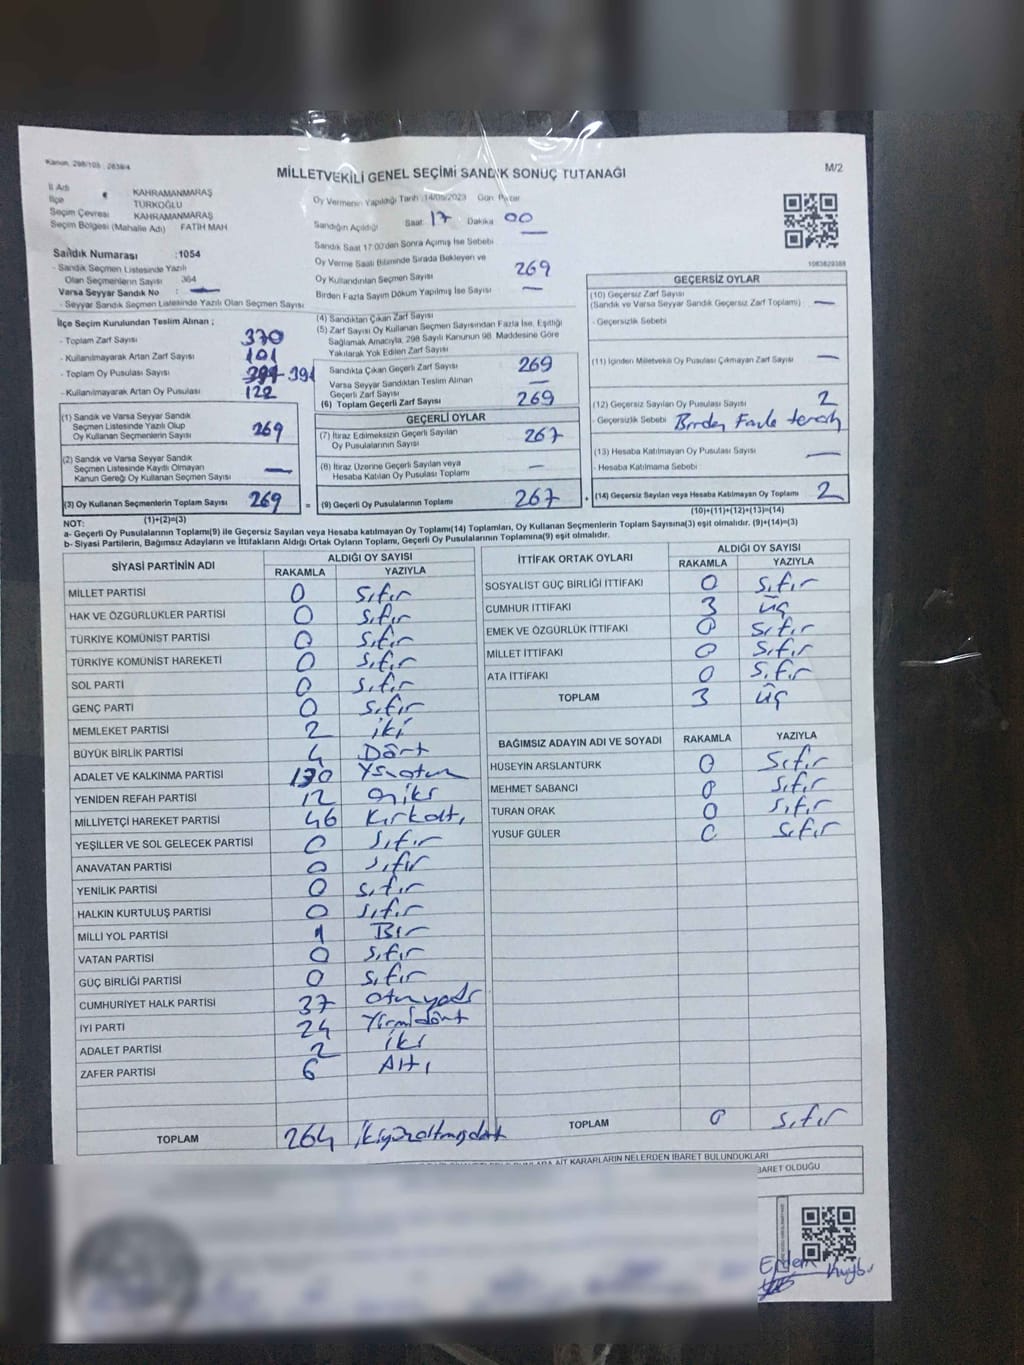 Kanun: 298/105 : 2839/4
MİLLETVEKİLİ GENEL SEÇİMİ SANDIK SONUÇ TUTANAĞI
M/2
İl Adı KAHRAMANMARAŞ
İlçe TÜRKOĞLU
Seçim Çevresi KAHRAMANMARAŞ
Seçim Bölgesi (Mahalle Adı) FATİH MAH
Oy Vermenin Yapıldığı Tarih :14/05/2023 Gün: Pazar
Sandığın Açıldığı Saat 17 Dakika 00
Sandık Saat 17:00'den Sonra Açımış İse Sebebi —
Oy Verme Saati Bitiminde Sırada Bekleyen ve
Oy Kullandırılan Seçmen Sayısı 269
Birden Fazla Sayım Döküm Yapılmış İse Sayısı —
Sandık Numarası :1054
- Sandık Seçmen Listesinde Yazılı
Olan Seçmenlerin Sayısı 364
Varsa Seyyar Sandık No : —
- Seyyar Sandık Seçmen Listesinde Yazılı Olan Seçmen Sayısı
1083829388
İlçe Seçim Kurulundan Teslim Alınan ;
- Toplam Zarf Sayısı 370
- Kullanılmayarak Artan Zarf Sayısı 101
- Toplam Oy Pusulası Sayısı 391
- Kullanılmayarak Artan Oy Pusulası 122
(1) Sandık ve Varsa Seyyar Sandık
Seçmen Listesinde Yazılı Olup
Oy Kullanan Seçmenlerin Sayısı 269
(2) Sandık ve Varsa Seyyar Sandık
Seçmen Listesinde Kayıtlı Olmayan
Kanun Gereği Oy Kullanan Seçmen Sayısı —
(3) Oy Kullanan Seçmenlerin Toplam Sayısı 269
(1)+(2)=(3)
(4) Sandıktan Çıkan Zarf Sayısı
(5) Zarf Sayısı Oy Kullanan Seçmen Sayısından Fazla İse, Eşitliği
Sağlamak Amacıyla, 298 Sayılı Kanunun 98. Maddesine Göre
Yakılarak Yok Edilen Zarf Sayısı
Sandıkta Çıkan Geçerli Zarf Sayısı 269
Varsa Seyyar Sandıktan Teslim Alınan
Geçerli Zarf Sayısı —
(6) Toplam Geçerli Zarf Sayısı 269
GEÇERLİ OYLAR
(7) İtiraz Edilmeksizin Geçerli Sayılan
Oy Pusulalarının Sayısı 267
(8) İtiraz Üzerine Geçerli Sayılan veya
Hesaba Katılan Oy Pusulası Toplamı —
= (9) Geçerli Oy Pusulalarının Toplamı 267
GEÇERSİZ OYLAR
(10) Geçersiz Zarf Sayısı
(Sandık ve Varsa Seyyar Sandık Geçersiz Zarf Toplamı) —
- Geçersizlik Sebebi
(11) İçinden Milletvekili Oy Pusulası Çıkmayan Zarf Sayısı —
(12) Geçersiz Sayılan Oy Pusulası Sayısı 2
- Geçersizlik Sebebi Birden Fazla tercih
(13) Hesaba Katılmayan Oy Pusulası Sayısı —
- Hesaba Katılmama Sebebi
+ (14) Geçersiz Sayılan veya Hesaba Katılmayan Oy Toplamı 2
(10)+(11)+(12)+(13)=(14)
NOT:
a- Geçerli Oy Pusulalarının Toplamı(9) ile Geçersiz Sayılan veya Hesaba katılmayan Oy Toplamı(14) Toplamları, Oy Kullanan Seçmenlerin Toplam Sayısına(3) eşit olmalıdır. (9)+(14)=(3)
b- Siyasi Partilerin, Bağımsız Adayların ve İttifakların Aldığı Ortak Oyların Toplamı, Geçerli Oy Pusulalarının Toplamına(9) eşit olmalıdır.
SİYASİ PARTİNİN ADI ALDIĞI OY SAYISI
RAKAMLA YAZIYLA
MİLLET PARTİSİ 0 Sıfır
HAK VE ÖZGÜRLÜKLER PARTİSİ 0 Sıfır
TÜRKİYE KOMÜNİST PARTİSİ 0 Sıfır
TÜRKİYE KOMÜNİST HAREKETİ 0 Sıfır
SOL PARTİ 0 Sıfır
GENÇ PARTİ 0 Sıfır
MEMLEKET PARTİSİ 2 iki
BÜYÜK BİRLİK PARTİSİ 4 Dört
ADALET VE KALKINMA PARTİSİ 130 Yüzotuz
YENİDEN REFAH PARTİSİ 12 oniki
MİLLİYETÇİ HAREKET PARTİSİ 46 Kırkaltı
YEŞİLLER VE SOL GELECEK PARTİSİ 0 Sıfır
ANAVATAN PARTİSİ 0 Sıfır
YENİLİK PARTİSİ 0 Sıfır
HALKIN KURTULUŞ PARTİSİ 0 Sıfır
MİLLİ YOL PARTİSİ 1 Bir
VATAN PARTİSİ 0 Sıfır
GÜÇ BİRLİĞİ PARTİSİ 0 Sıfır
CUMHURİYET HALK PARTİSİ 37 Otuzyedi
İYİ PARTİ 24 Yirmidört
ADALET PARTİSİ 2 iki
ZAFER PARTİSİ 6 Altı
TOPLAM 264 ikiyüzaltmışdört
İTTİFAK ORTAK OYLARI ALDIĞI OY SAYISI
RAKAMLA YAZIYLA
SOSYALİST GÜÇ BİRLİĞİ İTTİFAKI 0 Sıfır
CUMHUR İTTİFAKI 3 üç
EMEK VE ÖZGÜRLÜK İTTİFAKI 0 Sıfır
MİLLET İTTİFAKI 0 Sıfır
ATA İTTİFAKI 0 Sıfır
TOPLAM 3 üç
BAĞIMSIZ ADAYIN ADI VE SOYADI RAKAMLA YAZIYLA
HÜSEYİN ARSLANTÜRK 0 Sıfır
MEHMET SABANCI 0 Sıfır
TURAN ORAK 0 Sıfır
YUSUF GÜLER 0 Sıfır
TOPLAM 0 Sıfır
AİT KARARLARIN NELERDEN İBARET BULUNDUKLARI
BARET OLDUĞU
Erdem